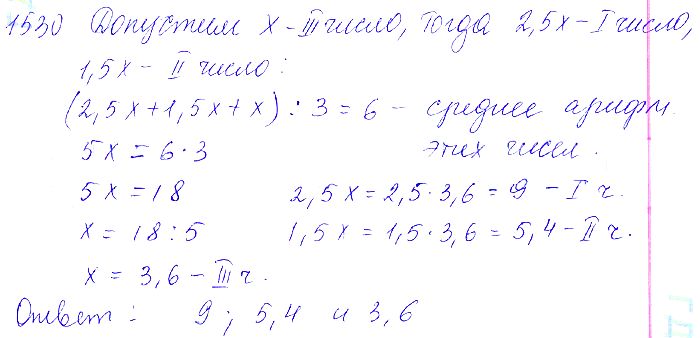 1530 Допустим x - III число, тогда 2,5x - I число,
1,5x - II число:
(2,5x+1,5x+x) : 3 = 6 - среднее арифм.
5x = 6·3 этих чисел.
5x = 18 2,5x = 2,5·3,6 = 9 - I ч.
x = 18:5 1,5x = 1,5·3,6 = 5,4 - II ч.
x = 3,6 - III ч.
Ответ: 9; 5,4 и 3,6